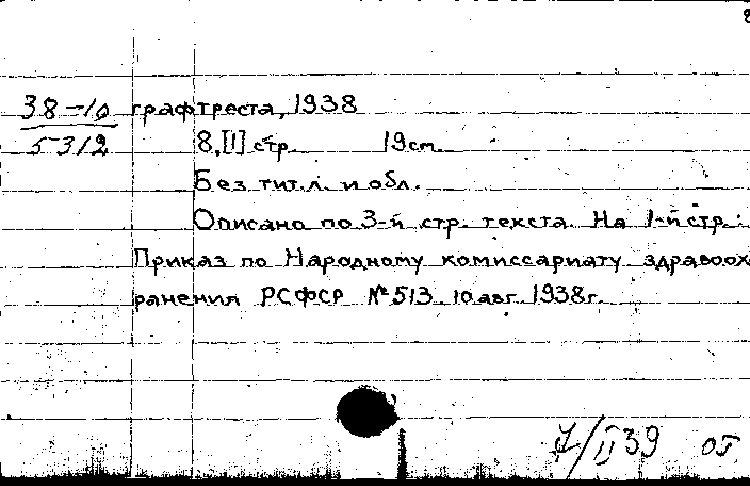 38-10 графтреста, 1938
5312 8, [1] стр. 19 см.
Без тит. л. и обл.
Описано по 3-й стр. текста. На 1-й стр.:
Приказ по Народному комиссариату здравоох
ранения РСФСР № 513. 10 авг. 1938 г.
/II 39